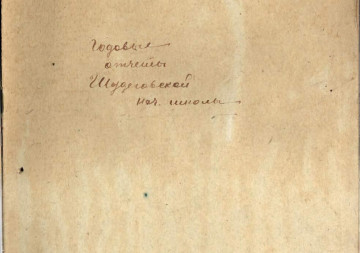 Годовые
отчеты
Шудеговской
нач. школы